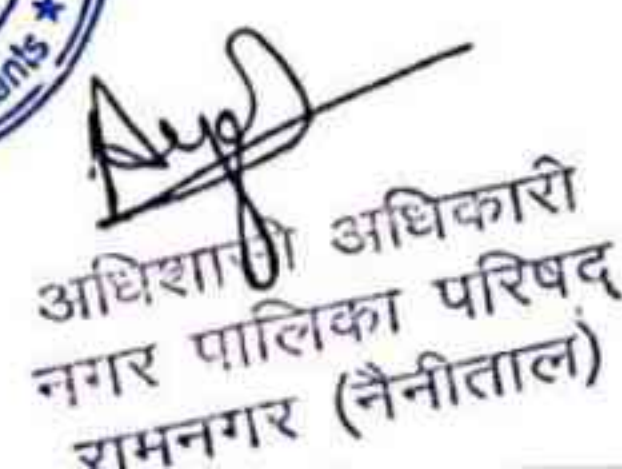 ants ★
अधिशासी अधिकारी
नगर पालिका परिषद्
रामनगर (नैनीताल)